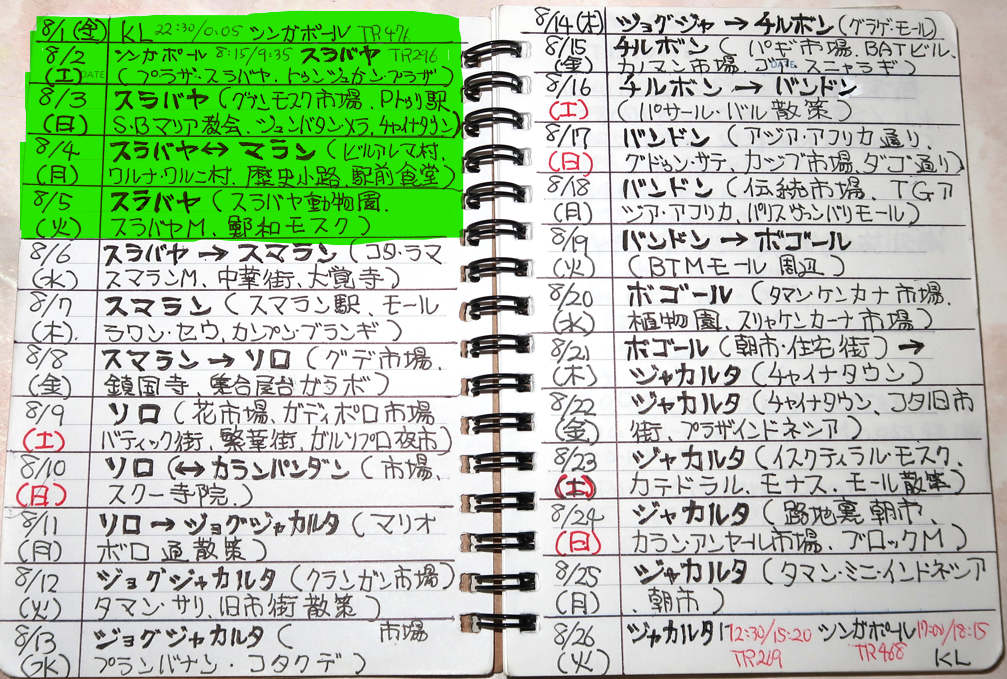 8/1 (金) KL 22:30/0:05 シンガポール TR476
8/2 シンガポール 8:15/9:35 スラバヤ TR296
(土) DATE (プラザ・スラバヤ、トゥンジュガン・プラザ)
8/3 スラバヤ (グブン モスク市場、Pトゥリ駅
(日) S・Bマリア教会、ジュンバタンメラ、チャイナタウン)
8/4 スラバヤ↔マラン (ビルアルマ村、
(月) ワルナ・ワルニ村、歴史小路、駅前食堂)
8/5 スラバヤ (スラバヤ動物園、
(火) スラバヤM、鄭和モスク)
8/6 スラバヤ→スマラン (コタ・ラマ
(水) スマランM、中華街、大覚寺)
8/7 スマラン (スマラン駅、モール
(木) ラワン・セウ、カンプン・ブランギ)
8/8 スマラン→ソロ (グデ市場、
(金) 鎮国寺、集合屋台ガラボ)
8/9 ソロ (花市場、ガディポロ市場
(土) バティック街、繁華街、ガルソプロ夜市)
8/10 ソロ(↔カランパンダン (市場、
(日) スクー寺院、)
8/11 ソロ→ジョグジャカルタ (マリオ
(月) ボロ通散策)
8/12 ジョグジャカルタ (クランガン市場)
(火) タマン・サリ、旧市街散策)
8/13 ジョグジャカルタ ( 市場
(水) プランバナン・コタクデ)
8/14 (木) ジョグジャ→チルボン (グラゲ・モール)
8/15 チルボン (パギ市場、BATビル、
(金) カノマン市場、ゴア DATE スニャラギ)
8/16 チルボン→バンドン
(土) (パサール・バル散策)
8/17 バンドン (アジア・アフリカ通り
(日) グドゥン・サテ、カップ市場、ダゴ通り)
8/18 バンドン (伝統市場、TGア
(月) ジア・アフリカ、パリスヴァンバリモール)
8/19 バンドン→ボゴール
(火) (BTMモール 周辺)
8/20 ボゴール (タマン・ケンカナ市場、
(水) 植物園、スリャケンカーナ市場)
8/21 ボゴール (朝市・住宅街)→
(木) ジャカルタ (チャイナタウン)
8/22 ジャカルタ (チャイナタウン、コタ旧市
(金) 街、プラザインドネシア)
8/23 ジャカルタ (イスクティラル・モスク、
(土) カテドラル、モナス、モール散策)
8/24 ジャカルタ (路地裏朝市、
(日) カラン・アンヤール市場、ブロックM)
8/25 ジャカルタ (タマン・ミニ・インドネシア
(月) 、朝市)
8/26 ジャカルタ 12:30/15:20 シンガポール 17:00/18:15
(火) TR269 TR468 KL